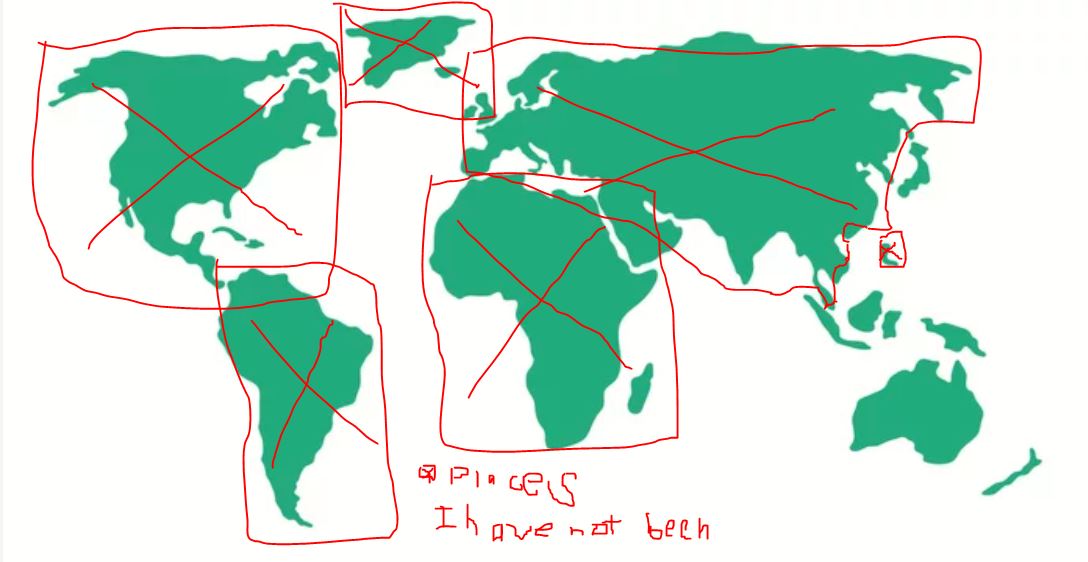 Places
I have not been